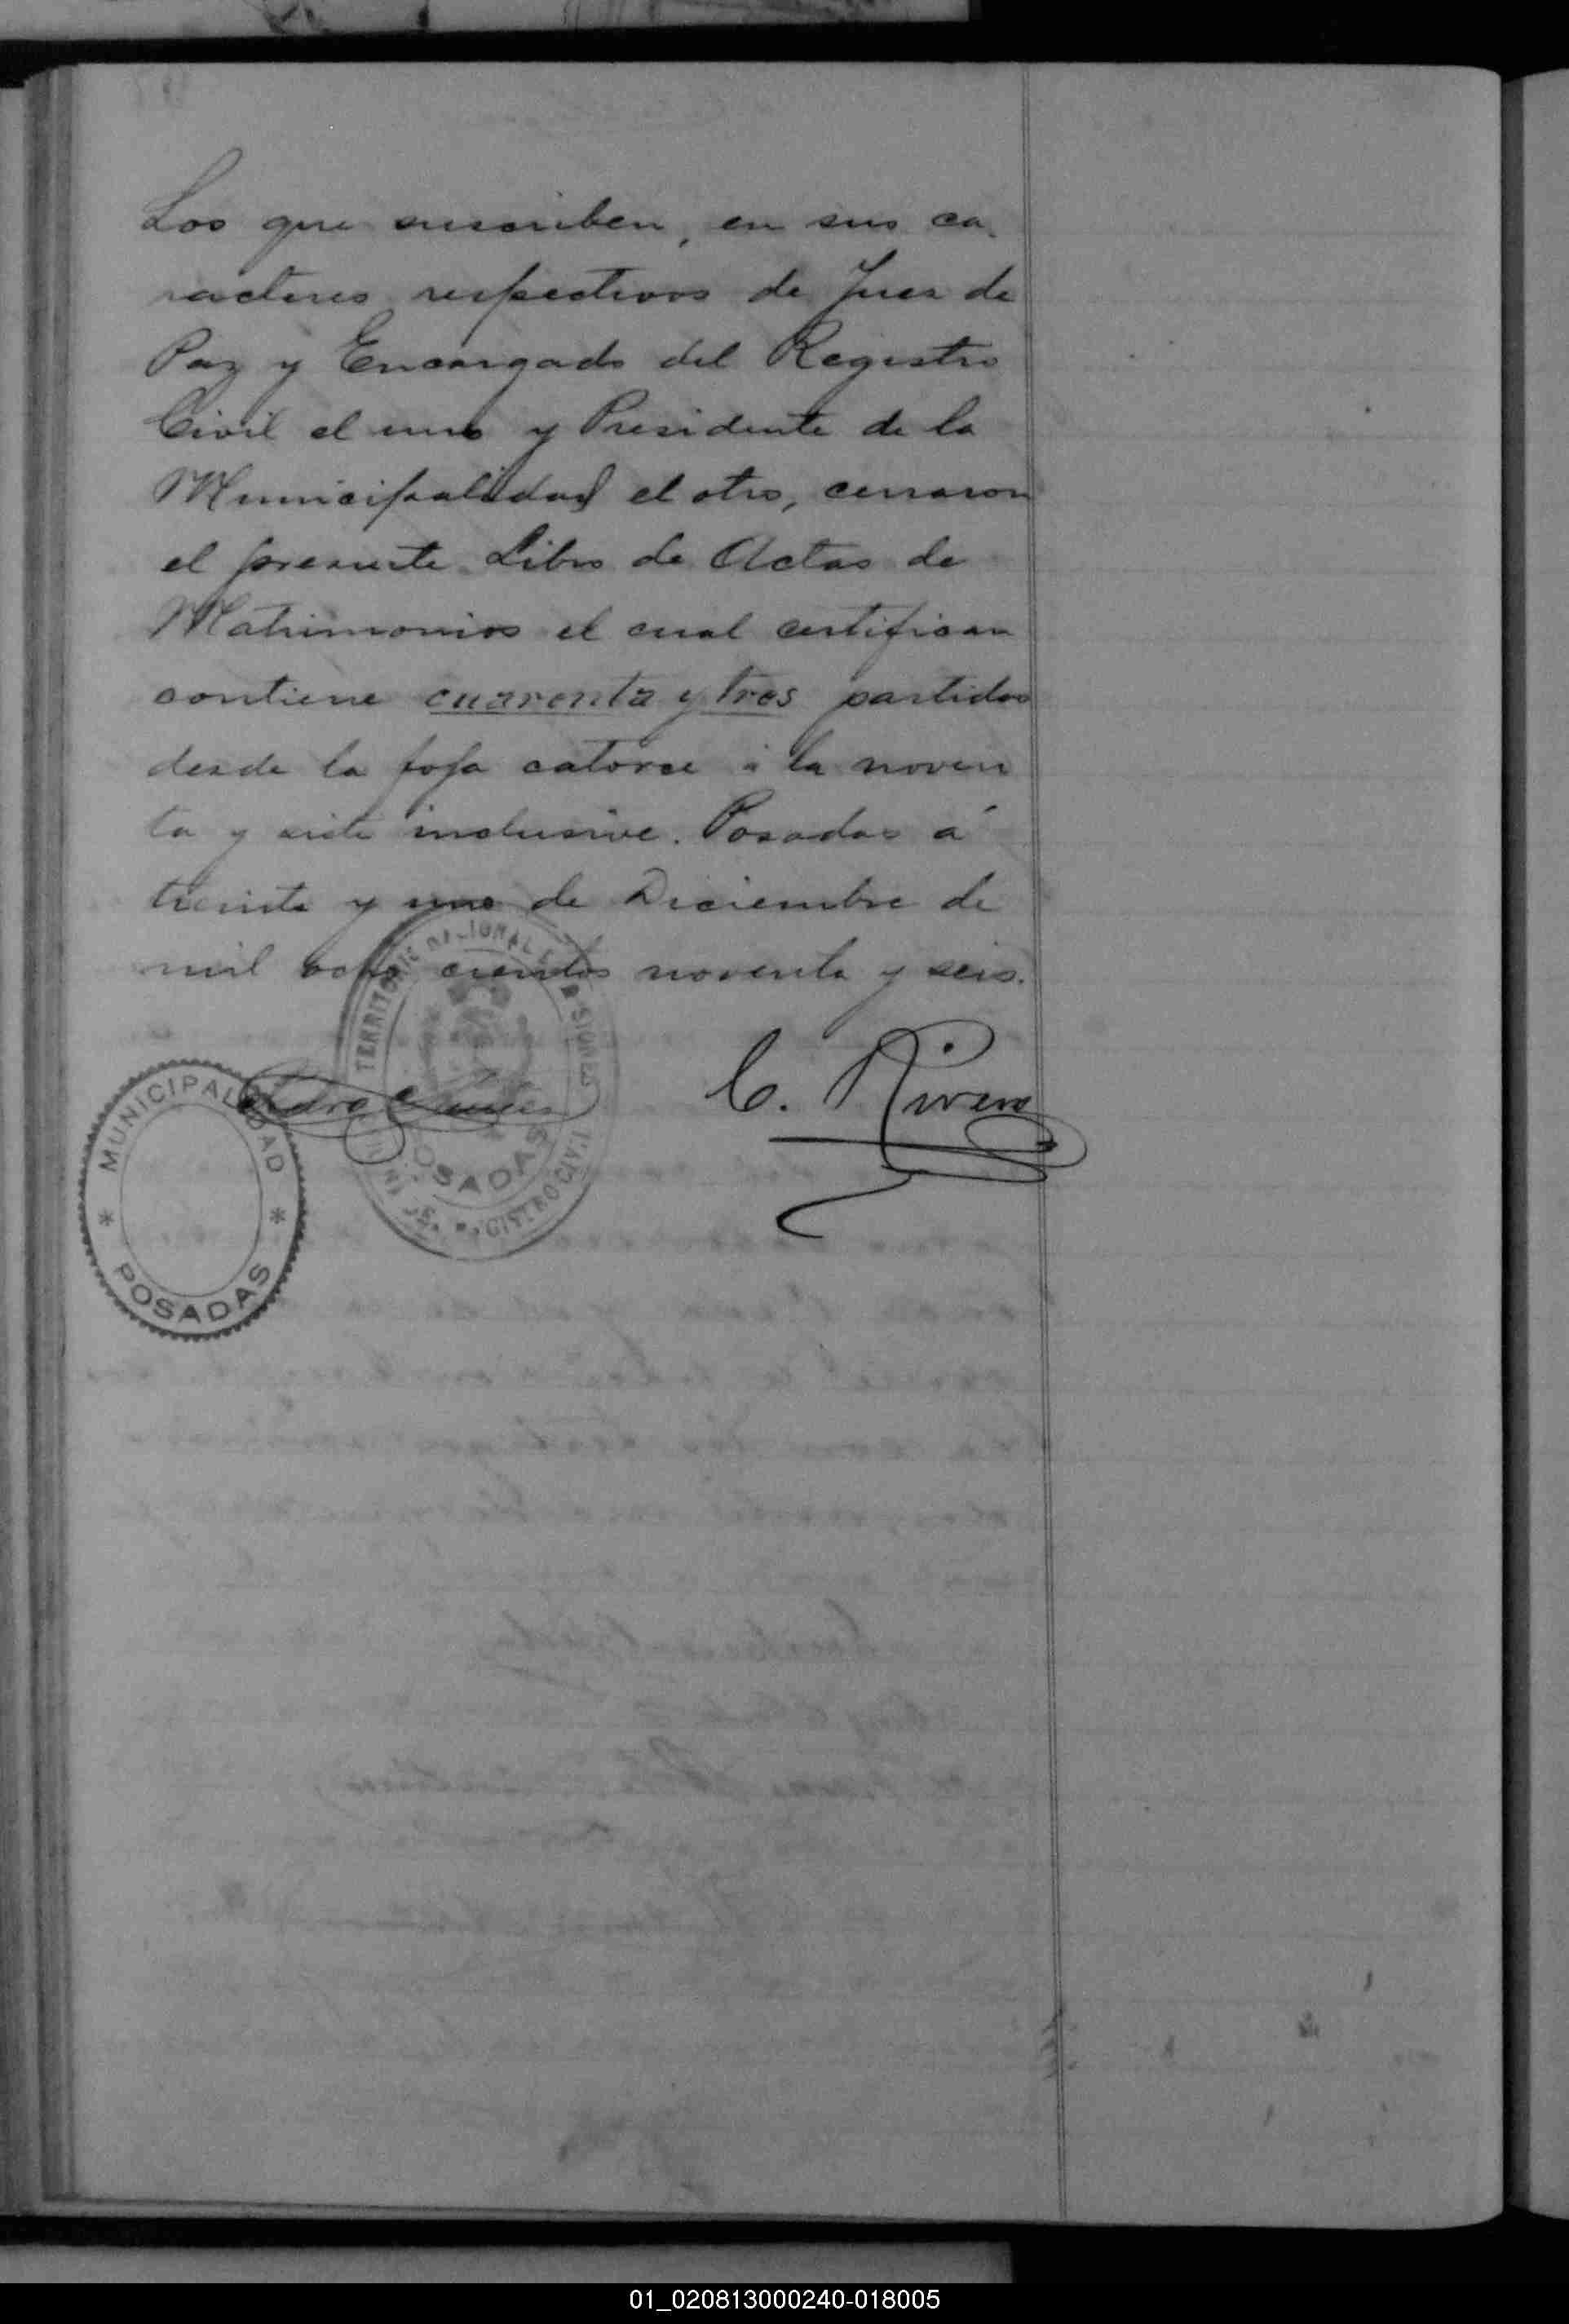 Los que suscriben, en sus ca-
racteres respectivos de Juez de
Paz y Encargado del Registro
Civil el uno y Presidente de la
Municipalidad el otro, cerraron
el presente Libro de Actas de
Matrimonios el cual certifican
contiene cuarenta y tres partidas
desde la foja catorce á la noven
ta y siete inclusive. Posadas á
treinta y uno de Diciembre de
mil ocho cientos noventa y seis.
C. Rivero
MUNICIPALIDAD
* POSADAS *
TERRITORIO NACIONAL DE MISIONES
POSADAS
REGISTRO CIVIL
01_020813000240-018005